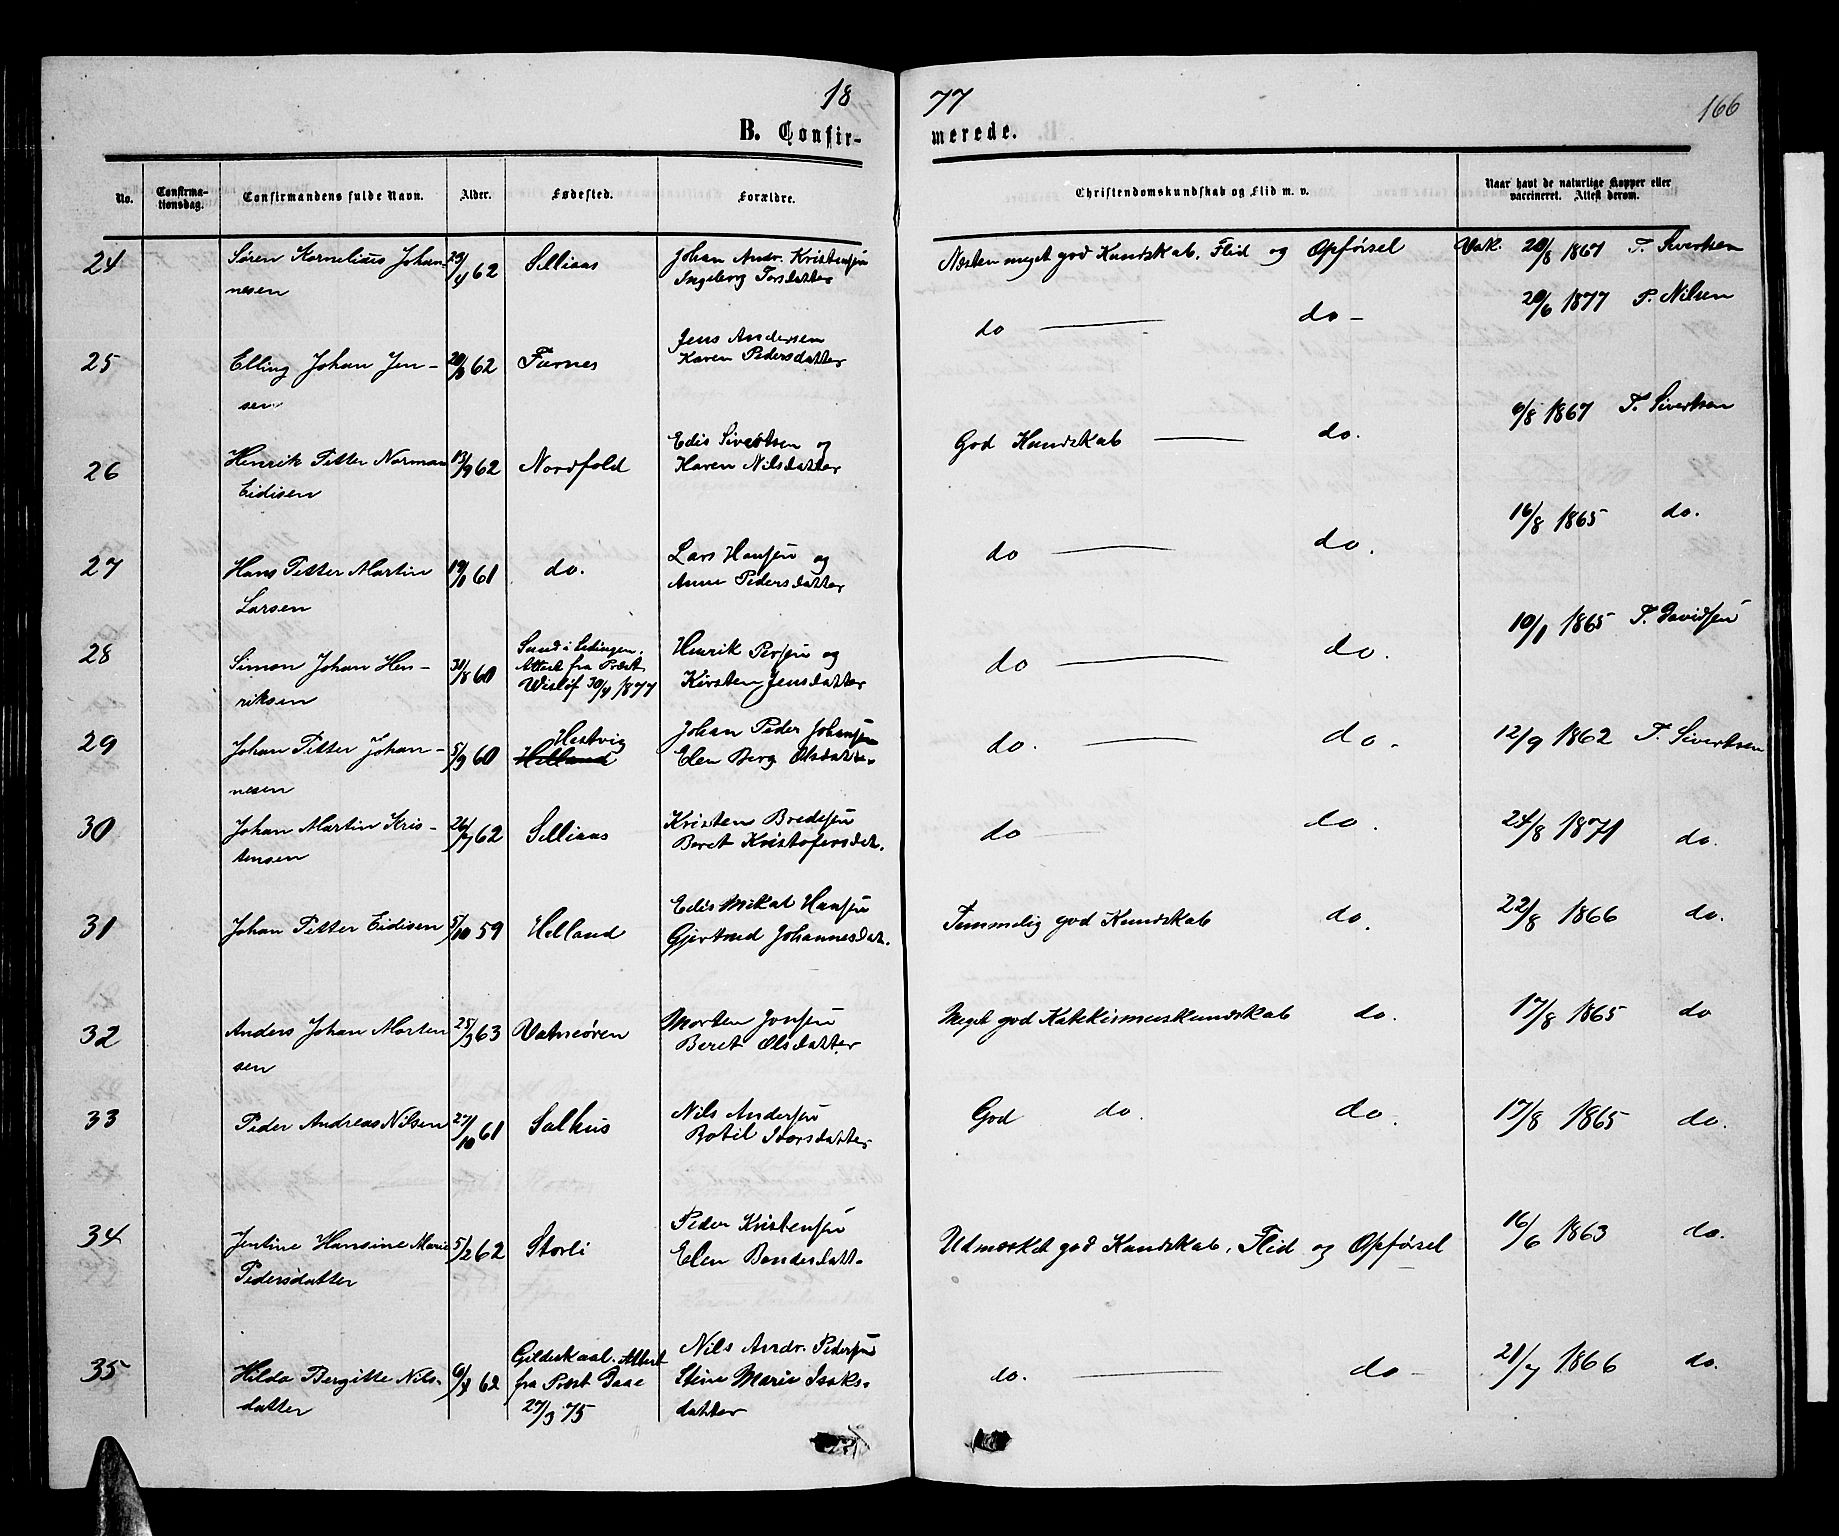 18 77 166
B. Confirmerede.
No. Confirmationsdag. Confirmandens fulde Navn. Alder. Fødested. Forældre. Christendomskundskab og Flid m. v. Naar havt de naturlige Kopper eller vaccineret. Attest derom.
24 Søren Kornelius Johan- 23/4 62 Selliaas Johan Andr. Kristensen Næsten meget god Kundskab, Flid og Opførsel Vak. 20/8 1867 T. Sivertsen
nesen Ingeborg Torsdatter
do do - 20/6 1877 P. Nilsen
25 Elling Johan Jen- 20/8 62 Færnes Jens Andersen
sen Karen Pedersdatter
26 Henrik Petter Norman 13/9 62 Nordfold Edis Sivertsen og God Kundskab do. 6/8 1867 T. Sivertsen
Eidisen Karen Nilsdatter
27 Hans Petter Martin 19/1 61 do. Lars Hansen og do do. 16/8 1865 do.
Larsen Anne Pedersdatter
28 Simon Johan Hen- 30/8 60 Sund i Lødingen. Henrik Persen og do do. 10/1 1865 T. Davidsen
riksen Attest fra Præst Kirsten Jensdatter
Wisløf 30/4 1877
29 Johan Petter Johan- 5/9 60 Hestvig Johan Peder Johansen do. do. 12/9 1862 T. Sivertsen
nesen Helland Elen Berg Olsdatter
30 Johan Martin Kris- 26/7 62 Selliaas Kristen Bredesen do do. 24/8 1871 do.
tensen Beret Kristofersdat.
31 Johan Petter Eidisen 5/10 59 Helland Edis Mikal Hansen Temmelig god Kundskab do. 22/8 1866 do.
Gjertrud Johannesdat.
32 Anders Johan Morten 25/3 63 Vatneören Morten Jonsen Meget god Katekismuskundskab do. 17/8 1865 do
sen Beret Olsdatter
33 Peder Andreas Nilsen 27/10 61 Salhus Nils Andersen God do. do. 17/8 1865 do.
Botil Istorsdatter
34 Jentine Hansine Marie 5/2 62 Storli Peder Kristensen Udmærket god Kundskab, Flid og Opførsel 16/6 1863 do.
Pedersdatter Elen Bendesdatt.
35 Hilda Bergitte Nils- 6/4 62 Gildeskaal. Attest Nils Andr. Pedersen do. do - 21/7 1866 do.
datter fra Præst Daae Stine Marie Isaks-
27/3 75 datter